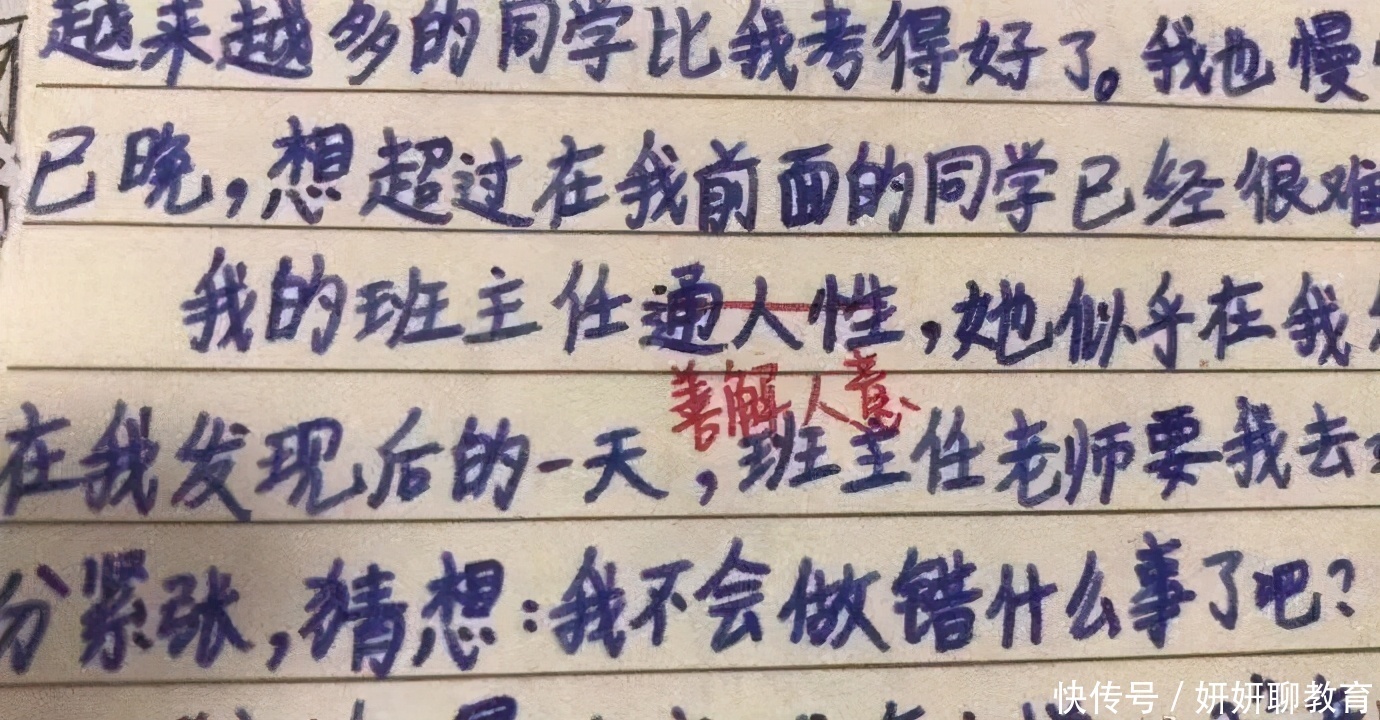 越来越多的同学比我考得好了。我也慢
已晚,想超过在我前面的同学已经很难
我的班主任通人性,她似乎在我
善解人意
在我发现后的一天,班主任老师要我去
分紧张,猜想:我不会做错什么事了吧?
快传号 / 妍妍聊教育